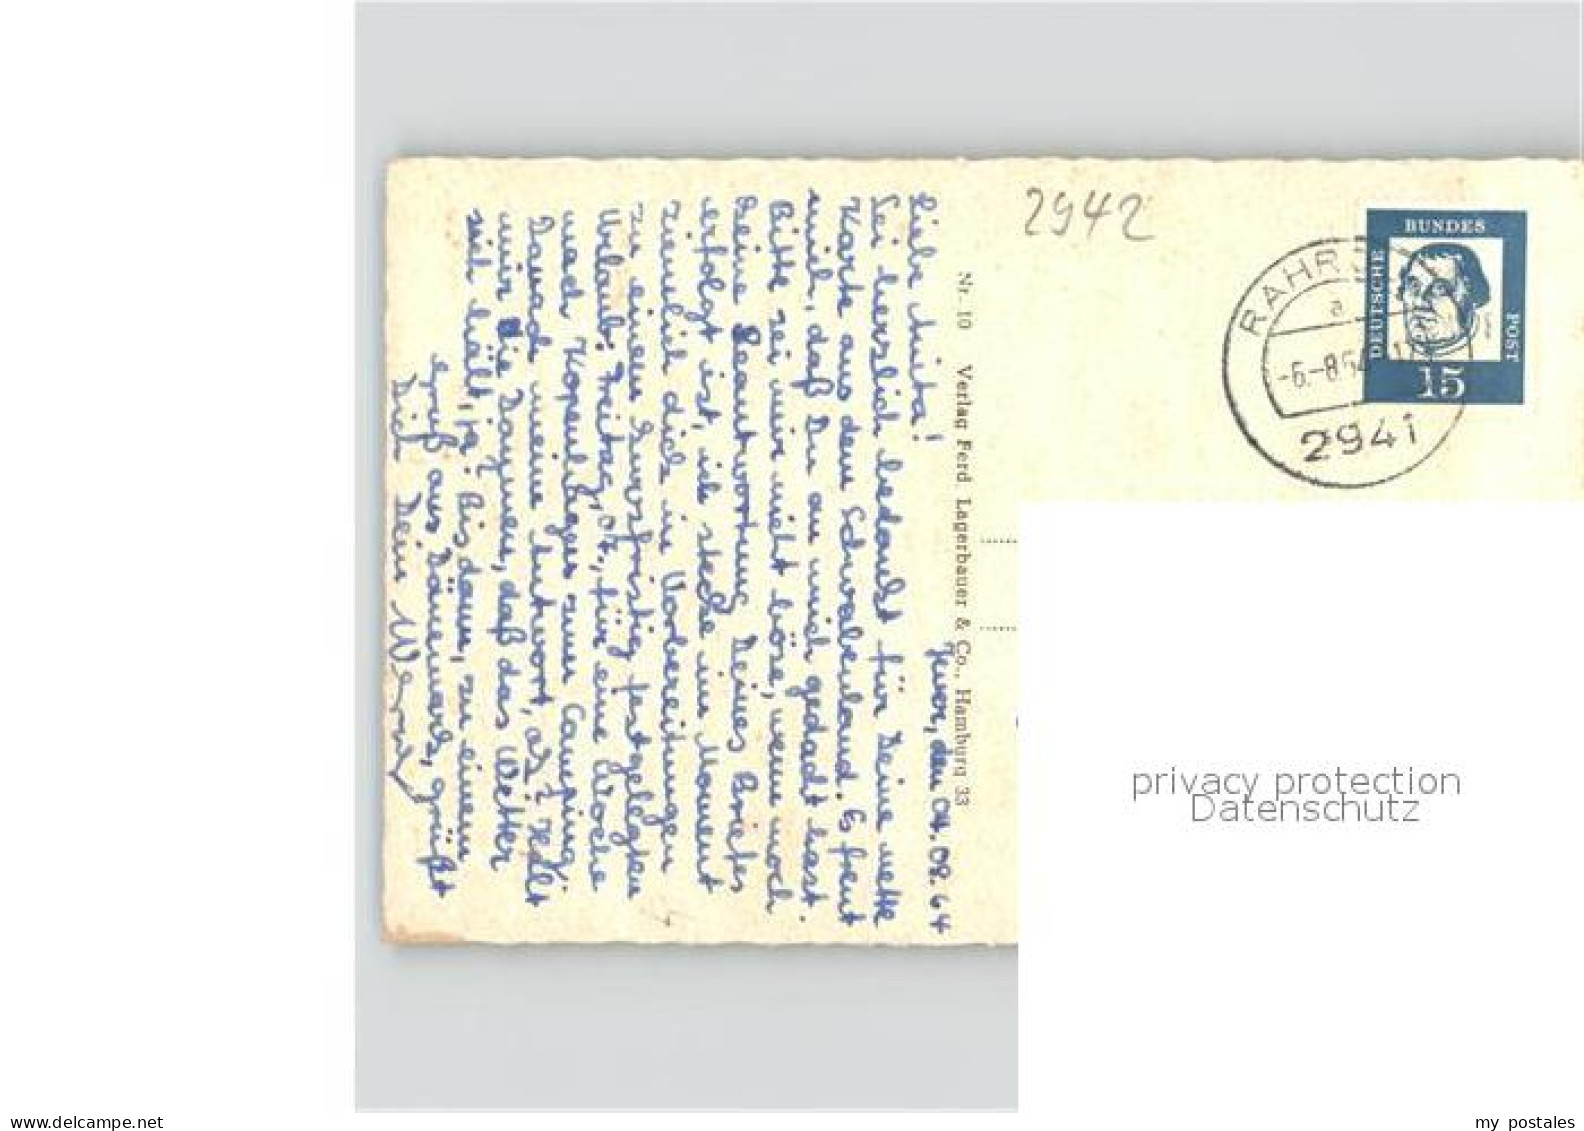 2942
BUNDES
DEUTSCHE
POST
15
RAHR
a
-6.-8.64
2941
Nr. 10 Verlag Ferd. Lagerbauer & Co., Hamburg 33
Jever, den 04.08.64
Liebe Anita!
Sei herzlich bedankt für Deine nette
Karte aus dem Schwabenland. Es freut
mich, daß Du an mich gedacht hast.
Bitte sei mir nicht böse, wenn noch
keine Beantwortung Deines Briefes
erfolgt ist, ich stecke im Moment
ziemlich dick in Vorbereitungen
zu einem kurzfristig festgelegten
Urlaub. Freitag, 07., für eine Woche
nach Kopenhagen zum Camping;
Danach meine Antwort, ok? Halt
mir die Daumen, daß das Wetter
sich hält, ja? Bis dann, zu einem
Gruß aus Dänemark, grüßt
Dich Dein
privacy protection
Datenschutz
www.delcampe.net
my postales